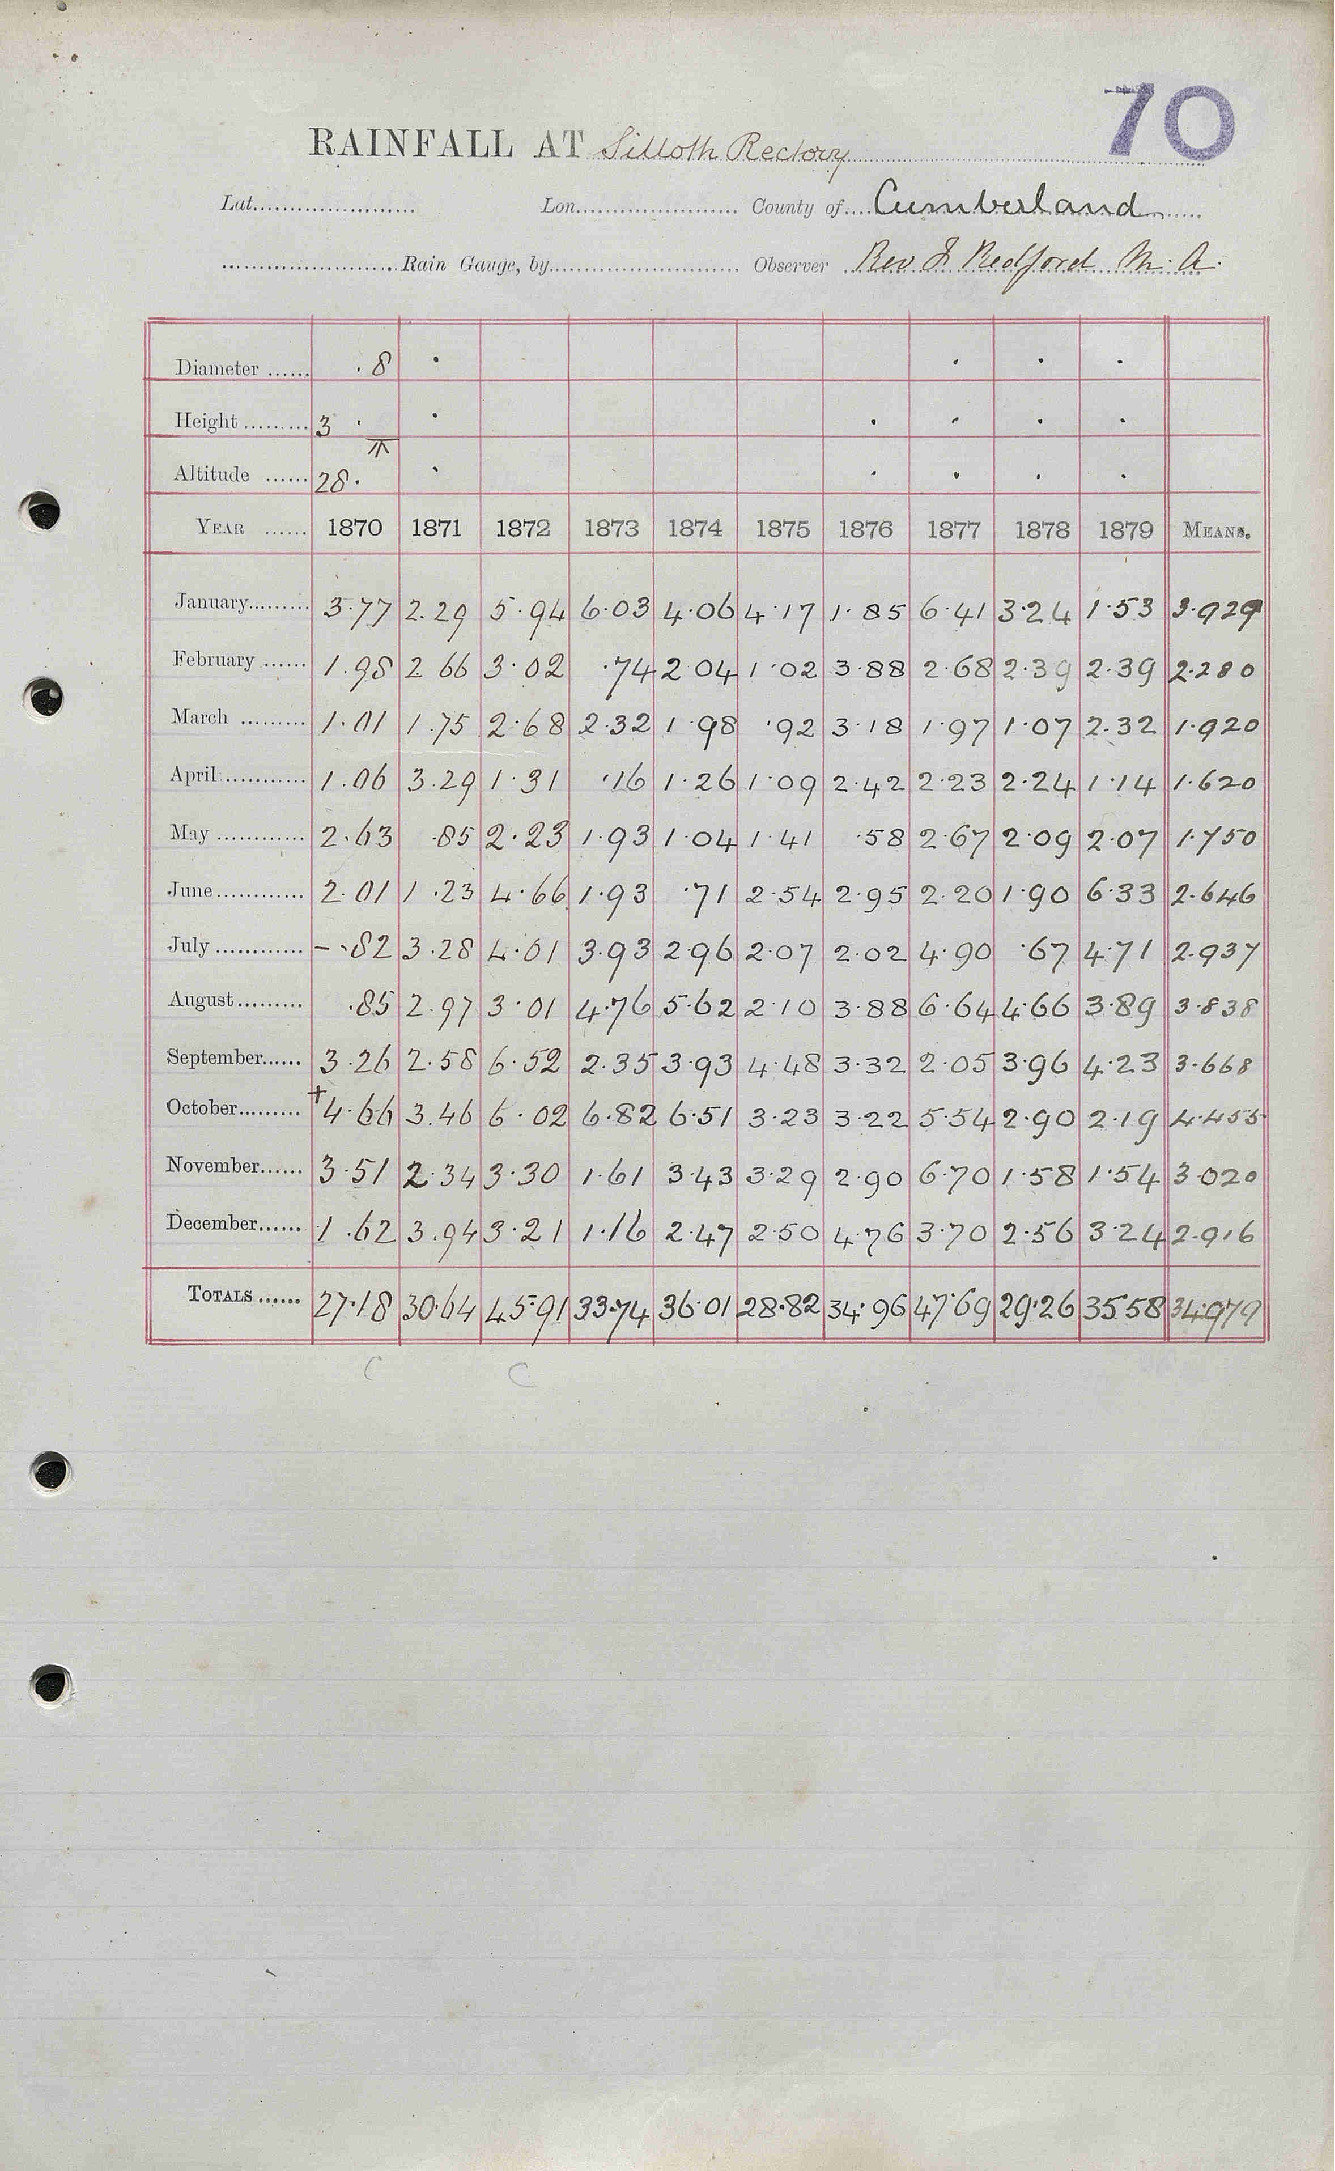 70
RAINFALL AT Silloth Rectory
Lat. Lon. County of Cumberland
Rain Gauge, by Observer Rev F Redford M.A.
Diameter ...... .8
Height ......... 3
Altitude ...... 28.
YEAR ...... 1870 1871 1872 1873 1874 1875 1876 1877 1878 1879 MEANS.
January......... 3.77 2.29 5.94 6.03 4.06 4.17 1.85 6.41 3.24 1.53 3.929
February ...... 1.98 2 66 3.02 .74 2.04 1.02 3.88 2.68 2.39 2.39 2.280
March ......... 1.01 1.75 2.68 2.32 1.98 .92 3.18 1.97 1.07 2.32 1.920
April............ 1.06 3.29 1.31 .16 1.26 1.09 2.42 2.23 2.24 1.14 1.620
May ............ 2.63 .85 2.23 1.93 1.04 1.41 .58 2.67 2.09 2.07 1.750
June............ 2.01 1.23 4.66 1.93 .71 2.54 2.95 2.20 1.90 6.33 2.646
July ............ -.82 3.28 4.01 3.93 2.96 2.07 2.02 4.90 .67 4.71 2.937
August......... .85 2.97 3.01 4.76 5.62 2.10 3.88 6.64 4.66 3.89 3.838
September...... 3.26 2.58 6.52 2.35 3.93 4.48 3.32 2.05 3.96 4.23 3.668
October......... +4.66 3.46 6.02 6.82 6.51 3.23 3.22 5.54 2.90 2.19 4.455
November...... 3.51 2.34 3.30 1.61 3.43 3.29 2.90 6.70 1.58 1.54 3.020
December...... 1.62 3.94 3.21 1.16 2.47 2.50 4.76 3.70 2.56 3.24 2.916
TOTALS ...... 27.18 30.64 45.91 33.74 36.01 28.82 34.96 47.69 29.26 35.58 34.979
C C